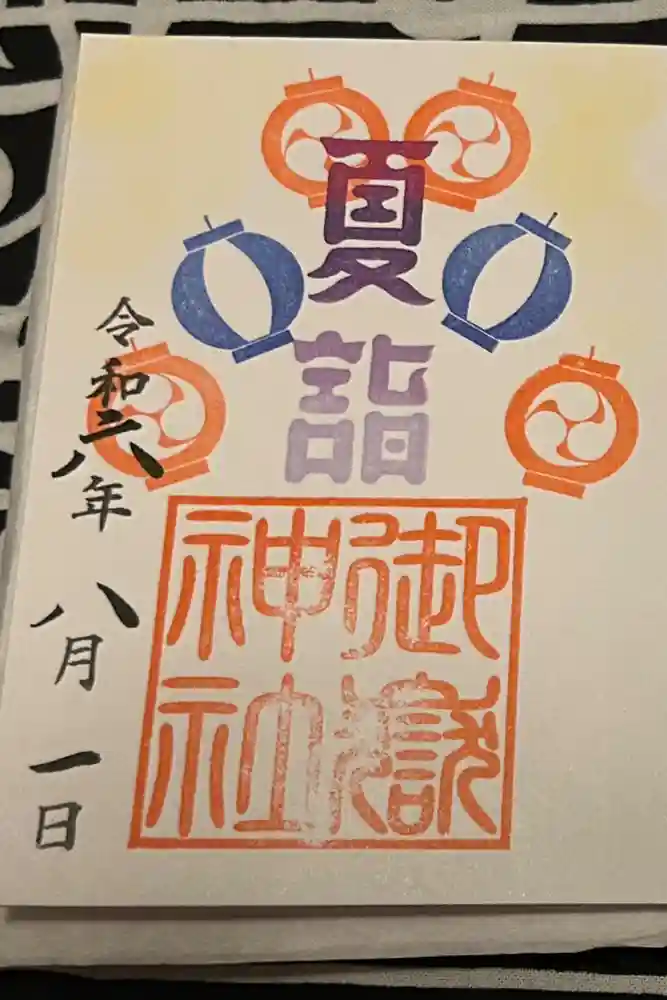 夏詣
御嶽
神社
令和六年 八月 一日